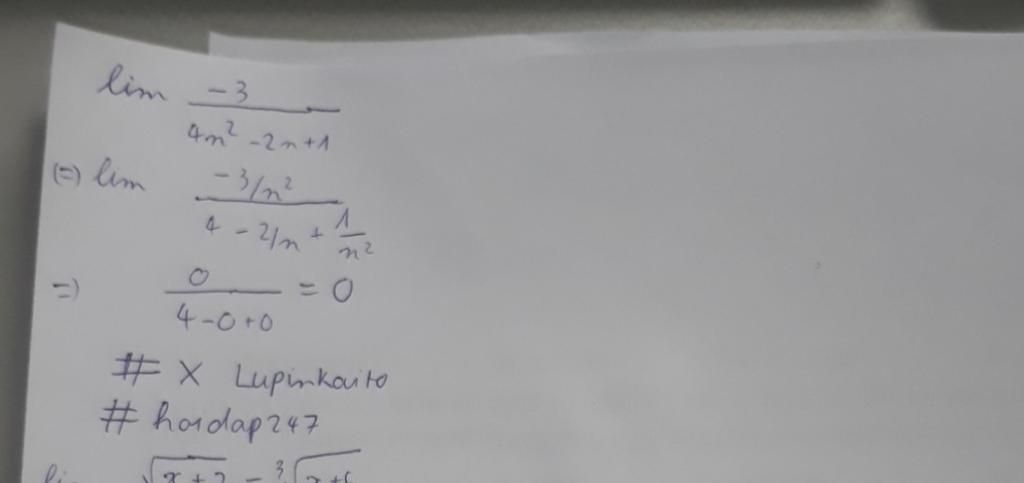 lim -3/(4n² - 2n + 1)
(=) lim (-3/n²)/(4 - 2/n + 1/n²)
=) 0/(4 - 0 + 0) = 0
# X Lupinkaito
# hardap247
√x+2 - ³√x+6